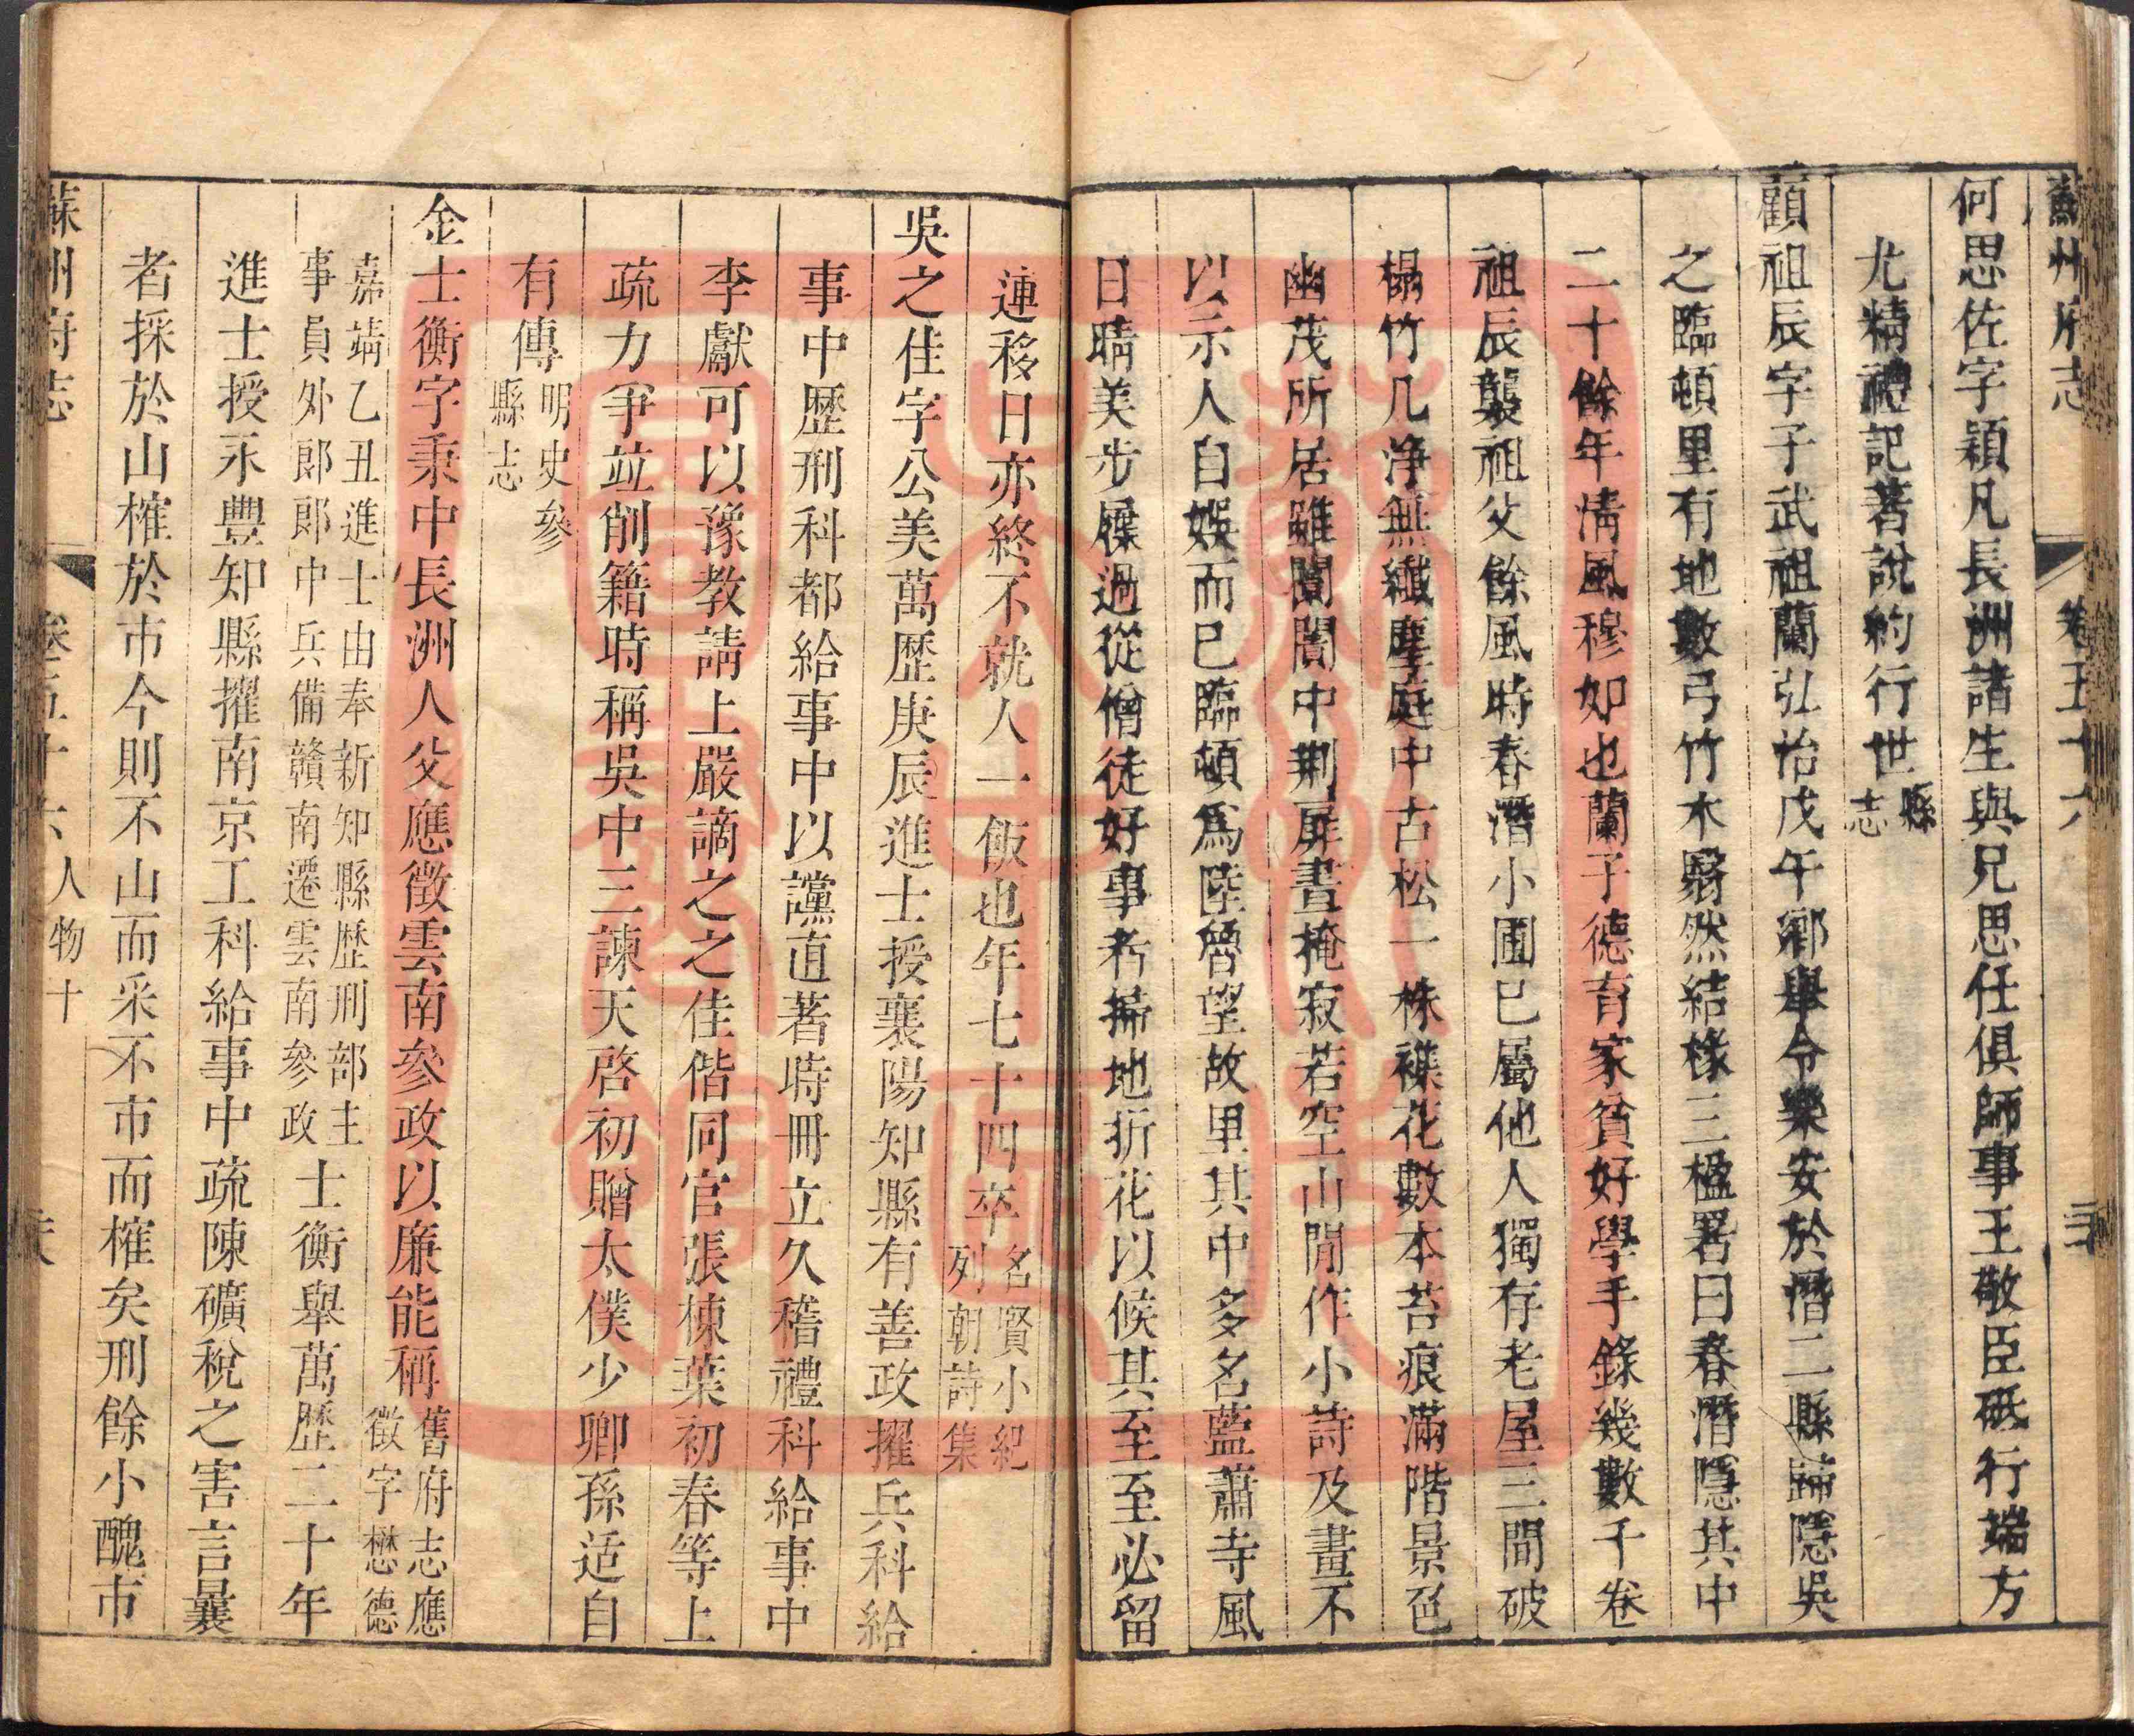 蘇州府志 卷五十六
何思佐字穎凡長洲諸生與兄思任俱師事王敬臣砥行端方
尤精禮記著說約行世縣志
顧祖辰字子武祖蘭弘治戊午鄉舉令樂安於潛二縣歸隱吳
之臨頓里有地數弓竹木翳然結椽三楹署曰春潛隱其中
二十餘年清風穆如也蘭子德育家貧好學手錄幾數千卷
祖辰襲祖父餘風時春潛小圃已屬他人獨存老屋三間破
榻竹几淨無纖塵庭中古松一株襍花數本苔痕滿階景色
幽茂所居雖闤闠中荆扉晝掩寂若空山閒作小詩及畫不
以示人自娛而已臨頓爲陸魯望故里其中多名藍蕭寺風
日晴美步屧過從僧徒好事者掃地折花以候其至至必留
連移日亦終不就人一飯也年七十四卒名賢小紀列朝詩集
吳之佳字公美萬歷庚辰進士授襄陽知縣有善政擢兵科給
事中歷刑科都給事中以讜直著時冊立久稽禮科給事中
李獻可以豫教請上嚴謫之之佳偕同官張棟葉初春等上
疏力爭竝削籍時稱吳中三諫天啓初贈太僕少卿孫适自
有傳明史參縣志
金士衡字秉中長洲人父應徵雲南參政以廉能稱舊府志應徵字懋德
嘉靖乙丑進士由奉新知縣歷刑部主事員外郎郎中兵備贛南遷雲南參政士衡舉萬歷二十年
進士授永豐知縣擢南京工科給事中疏陳礦稅之害言曩
者採於山榷於市今則不山而采不市而榷矣刑餘小醜市
蘇州府志 卷五十六 人物十